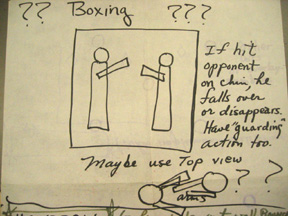 ?? Boxing ???
If hit
opponent
on chin, he
falls over
or disappears.
Have "guarding"
action too.
Maybe use Top view
? ?
arms